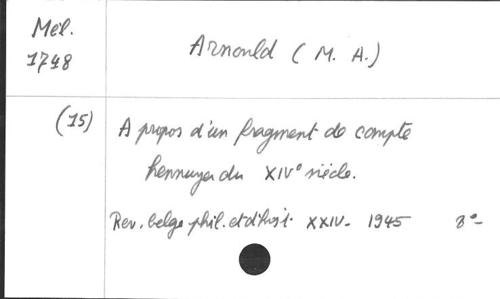 Mél.
1748
Arnould (M. A.)
(15)
A propos d'un fragment de compte
hennuyer du XIV° siècle.
Rev. belge phil. et d'hist. XXIV. 1945 8°